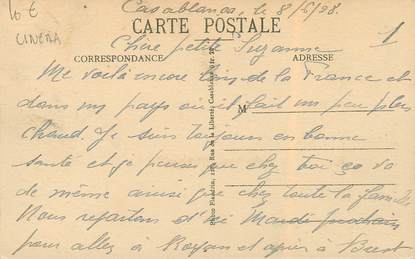 10 €
CINEMA
Casablanca, le 8/5/38.
CARTE POSTALE
1
Chère petite Suzanne
CORRESPONDANCE
ADRESSE
Me voilà encore loin de la France et
dans un pays où il fait un peu plus
M
chaud. Je suis toujours en bonne
santé et je pense que chez toi ça va
de même ainsi que chez toute la famille
Nous repartons d'ici Mardi prochain
pour aller à Royan et après à Brest
Photo Flandrin, Rue de la Liberté, Casablanca